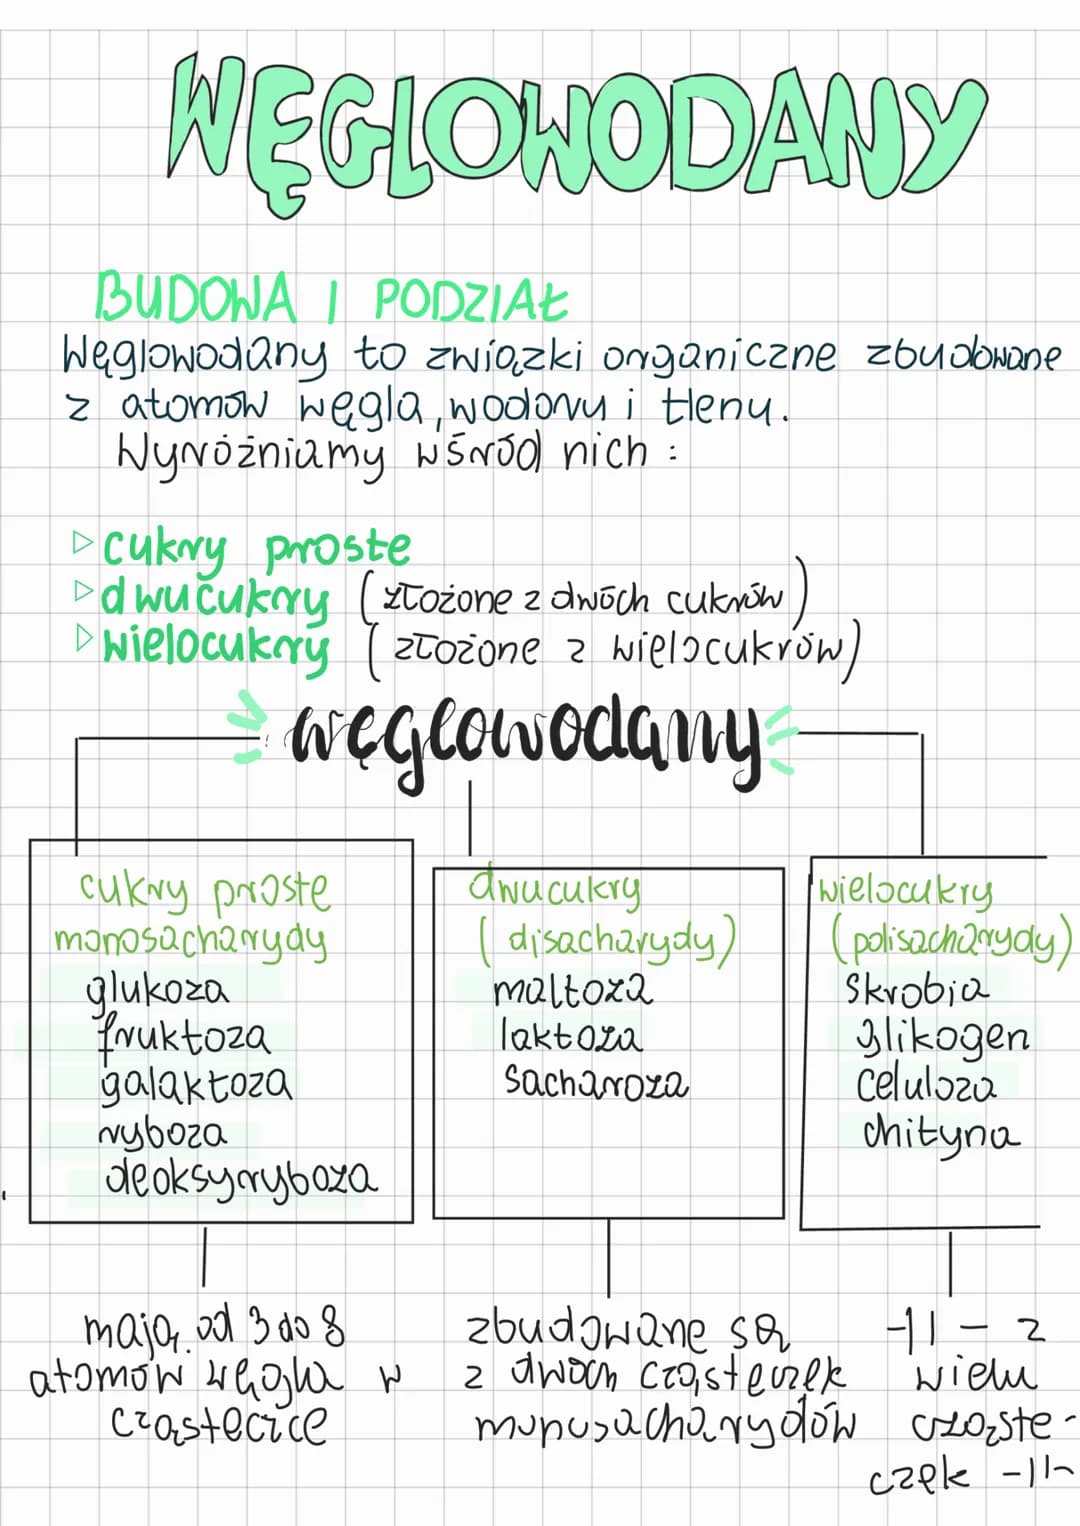 WĘGLOWODANY
BUDOWA I PODZIAŁ
Węglowodany to związki organiczne zbudowane
z atomów węgla, wodoru i tlenu.
Wyróżniamy wśród nich :
▷ cukry proste
▷ dwucukry (złożone z dwóch cukrów)
▷ wielocukry (złożone z wielocukrów)
węglowodany
cukry proste
monosacharydy
glukoza
fruktoza
galaktoza
ryboza
deoksyryboza
dwucukry
(disacharydy)
maltoza
laktoza
sacharoza
wielocukry
(polisacharydy)
skrobia
glikogen
celuloza
chityna
mają od 3 do 8
atomów węgla w
cząsteczce
zbudowane są
z dwóch cząsteczek
monosacharydów
-11- z
wielu
cząste-
czek -11-